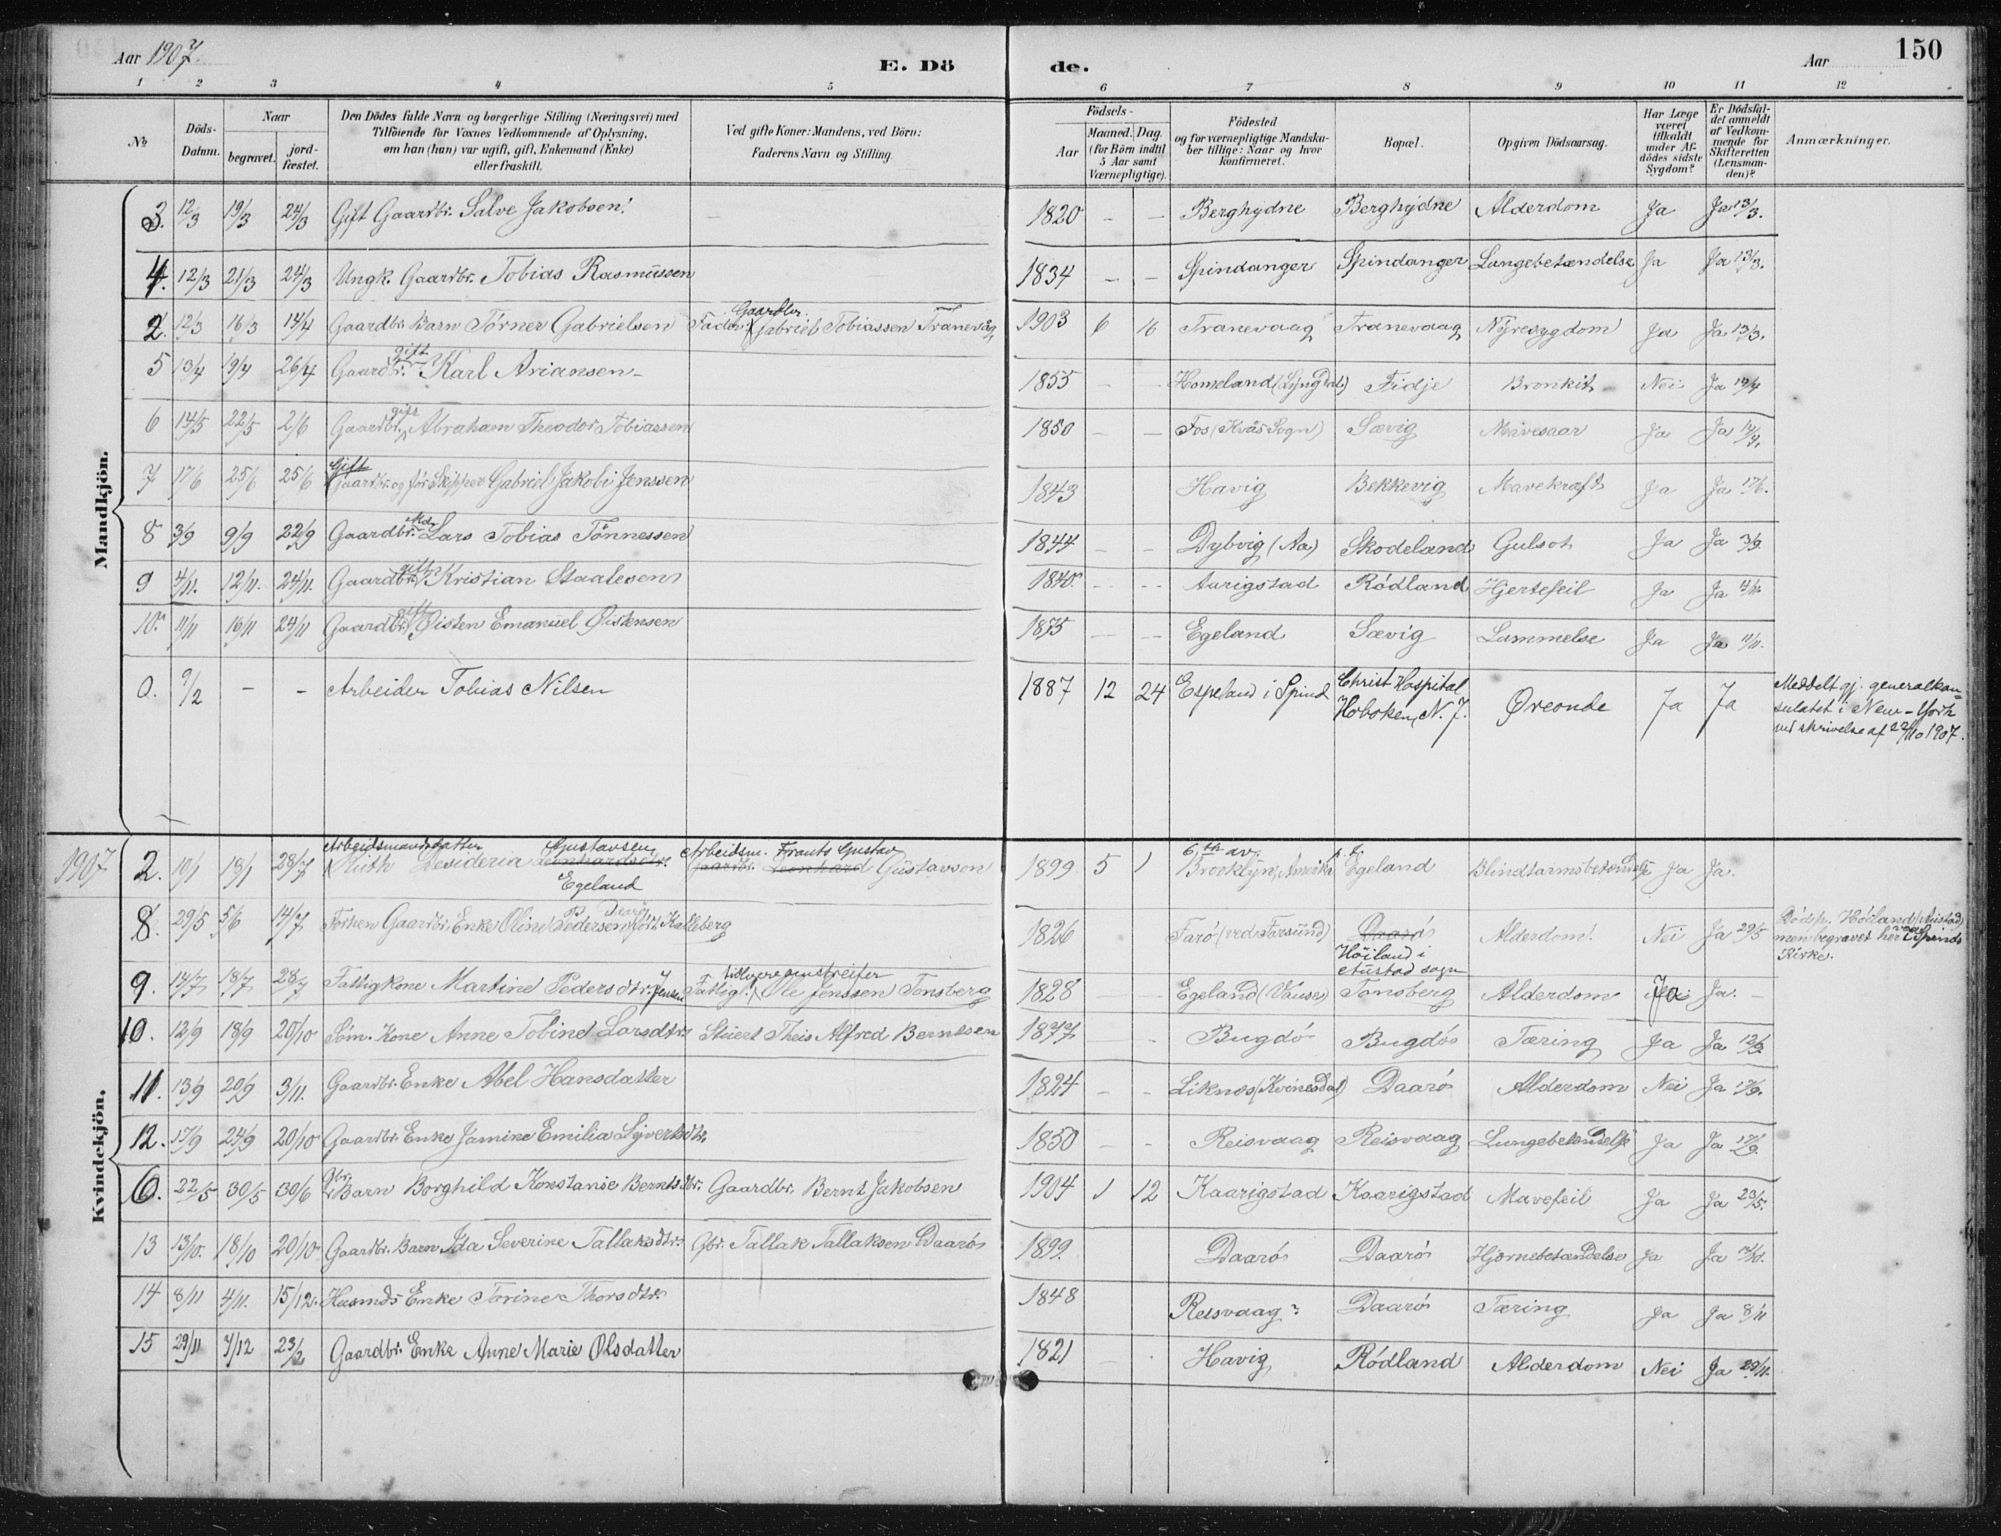 Aar 1907. E. Dö
de. Aar 150
1 2 3 4 5 6 7 8 9 10 11 12
No Döds-Datum. Naar begravet. jordfæstet. Den Dödes fulde Navn og borgerlige Stilling (Næringsvei) med Tilföiende for Voxnes Vedkommende af Oplysning, om han (hun) var ugift, gift, Enkemand (Enke) eller fraskilt. Ved gifte Koner: Mandens, ved Börn: Faderens Navn og Stilling. Födsels- Aar Maaned. Dag. (for Börn indtil 5 Aar samt Værnepligtige). Födested og for værnepligtige Mandskaber tillige: Naar og hvor konfirmeret. Bopæl. Opgiven Dödsaarsag. Har Læge været tilkaldt under Afdödes sidste Sygdom? Er Dödsfaldet anmeldt af Vedkommende for Skifteretten (Lensmanden)? Anmærkninger.
Mandkjön.
3. 12/3 19/3 24/3 Gift Gaardbr. Salve Jakobsen. — 1820 — — Berghydne Berghydne Alderdom Ja Ja 13/3.
4. 12/3 21/3 24/3 Ungk. Gaardbr. Tobias Rasmussen 1834 — — Spindanger Spindanger Lungebetændelse Ja Ja 13/3.
2. 12/3 16/3 14/4 Gaardbr. Barn Törner Gabrielsen Fader: Gaardbr. Gabriel Tobiassen Tranevåg 1903 6 16 Tranevaag Tranevaag Nyresygdom Ja Ja 13/3.
5 13/4 19/4 26/4 Gaardbr. gift Karl Ariansen 1855 — — Homeland (Lyngdal) Fidje Bronkit Nei Ja 14/4
6 14/5 22/5 2/6 Gaardbr. gift Abraham Theodor Tobiassen 1850 — — Fos (Kvås Sogn) Sævig Mavesaar Ja Ja
7 17/6 25/6 25/6 Gift Gaardbr. og för. Skipper Gabriel Jakobi Jenssen 1843 Havig Bekkevig Mavekræft Ja Ja 17/6.
8 3/9 9/9 22/9 Gaardbr. Lars Tobias Tönnessen 1844 — — Dybvig (Aa) Skodeland Gulsot Ja Ja 3/9.
9 4/11. 12/11. 24/11. Gaardbr. gift Kristian Staalesen 1840. -- -- Aarigstad Rödland Hjertefeil Ja Ja 4/11.
10. 11/11 16/11 24/11 Gaardbr. gift Øisten Emanuel Øistensen 1875 — — Egeland Sævig Lammelse Ja Ja 11/11.
0. 9/2 - - Arbeider Tobias Nilsen 1887 12 24 Espeland i Spind Christ Hospital Hoboken, N. J. Øreonde Ja Ja Meddelt gj. generalkonsulatet i New-York ved skrivelse af 22/10 1907.
Kvindekjön.
1907 2. 10/1 18/1 28/7 Arbeidsmandsdatter Ruth Desideria Lenhardsdtr. Gustavsen Egeland Arbeidsm. Frants Gustav Gaardbr. Leonhard Gustavson 1899 5 1 Brooklyn, Amerika Egeland Blindtarmsbetændelse Ja Ja.
8. 29/5 5/6 14/7 Forhen Gaardbr. Enke Oline Pedersen för. Kalleberg 1826 Farö (ved Farsund) Daarö Höiland i Austad sogn Alderdom. Nei Ja 29/5 Död p. Höiland (Austad) men begravet her ved Spinds Kirke.
9. 14/7 18/7 28/7 Fattigkone Martine Pedersdtr. Jensen Fattigl. tidligere Ole Jenssen Tonsberg 1828 — — Egeland (Vanse) Tonsberg Alderdom Ja Ja. —
10. 12/9 18/9 20/10 Söm. Kone Anne Tobine Larsdtr. Stuert Theis Alfred Berntsen 1877 — — Bugdö Bugdö Tæring Ja Ja 12/9.
11. 13/9 20/9 3/11. Gaardbr. Enke Abel Hansdatter 1824 - - Liknes (Kvinesdal) Daarö Alderdom Nei Ja 17/9.
12. 17/9 24/9 20/10 Gaardbr. Enke Jamine Emilia Syvertsdtr. 1850 - - Reisvaag Reisvaag Lungebetændelse Ja Ja 17/9.
6. 22/5 30/5 30/6 Gbr. Barn Borghild Konstanse Berntsdtr. Gaardbr. Bernt Jakobsen 1904 1 12 Kaarigstad Kaarigstad Mavefeil Ja Ja 23/5.
13 13/10. 18/10 20/10 Gaardbr. Barn Ida Severine Tallaksdtr. Gbr. Tallak Tallaksen Daarö 1899. Daarö Daarö Hjernebetændelse Ja Ja 14/10.
14 8/11 4/11. 15/12. Husmds Enke Torine Thorsdtr. 1848 Reisvaag? Daarö Tæring Ja Ja 8/11
15 29/11 7/12 23/2 Gaardbr. Enke Anne Marie Olsdatter 1821 - - Havig Rödland Alderdom Nei Ja 29/11.